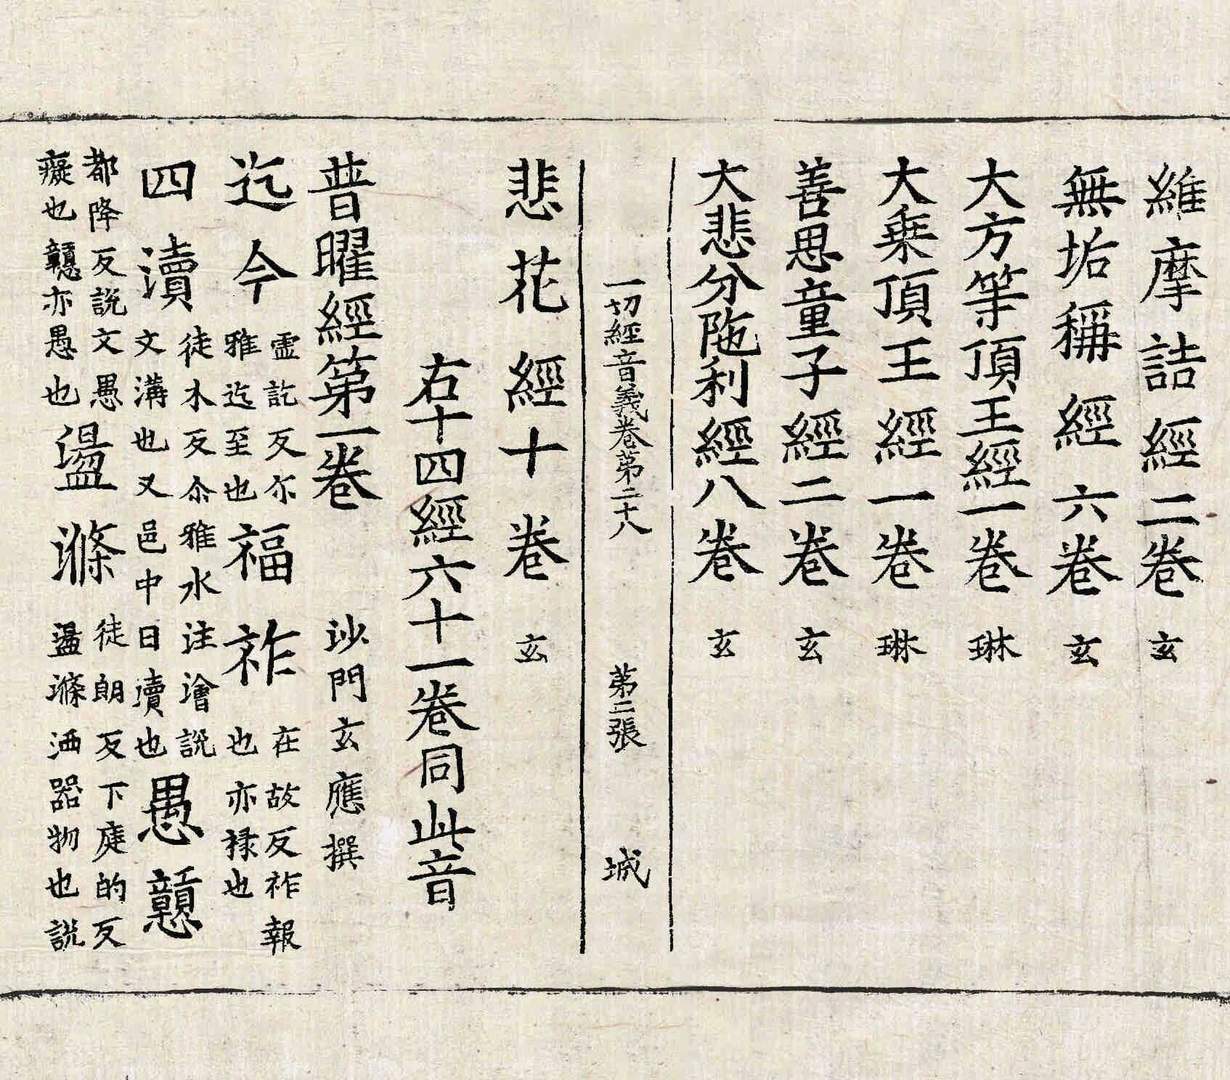 維摩詰經二卷 玄
無垢稱經六卷 玄
大方等頂王經一卷 琳
大乗頂王經一卷 琳
善思童子經二卷 玄
大悲分陁利經八卷 玄
一切經音義卷第二十八 第二張 城
悲花經十卷 玄
右十四經六十一卷同此音
普曜經第一卷 沙門玄應撰
迄今 虛訖反尒雅迄至也 福祚 在故反祚報也亦禄也
四瀆 徒木反尒雅水注澮説文溝也又邑中曰瀆也 愚戇
都降反説文愚癡也戇亦愚也 盪滌 徒朗反下庭的反盪滌洒器物也説